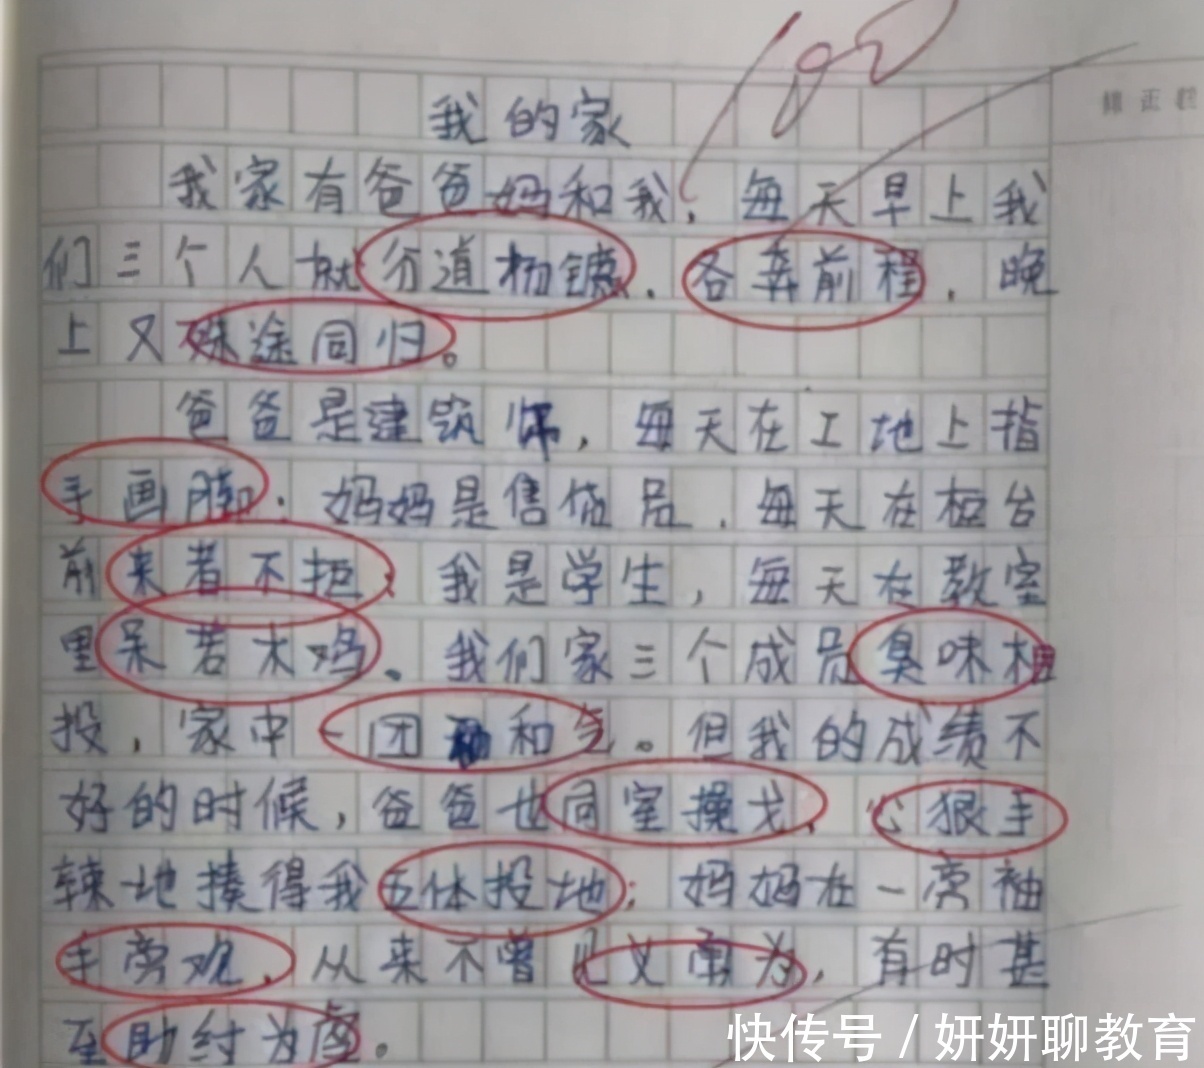 100
我的家
我家有爸爸妈和我，每天早上我
们三个人就分道扬镳，各奔前程，晚
上又殊途同归。
爸爸是建筑师，每天在工地上指
手画脚；妈妈是售货员，每天在柜台
前来者不拒；我是学生，每天在教室
里呆若木鸡。我们家三个成员臭味相
投，家中一团和气。但我的成绩不
好的时候，爸爸也同室操戈，心狠手
辣地揍得我五体投地；妈妈在一旁袖
手旁观，从来不曾见义勇为，有时甚
至助纣为虐。
快传号／妍妍聊教育